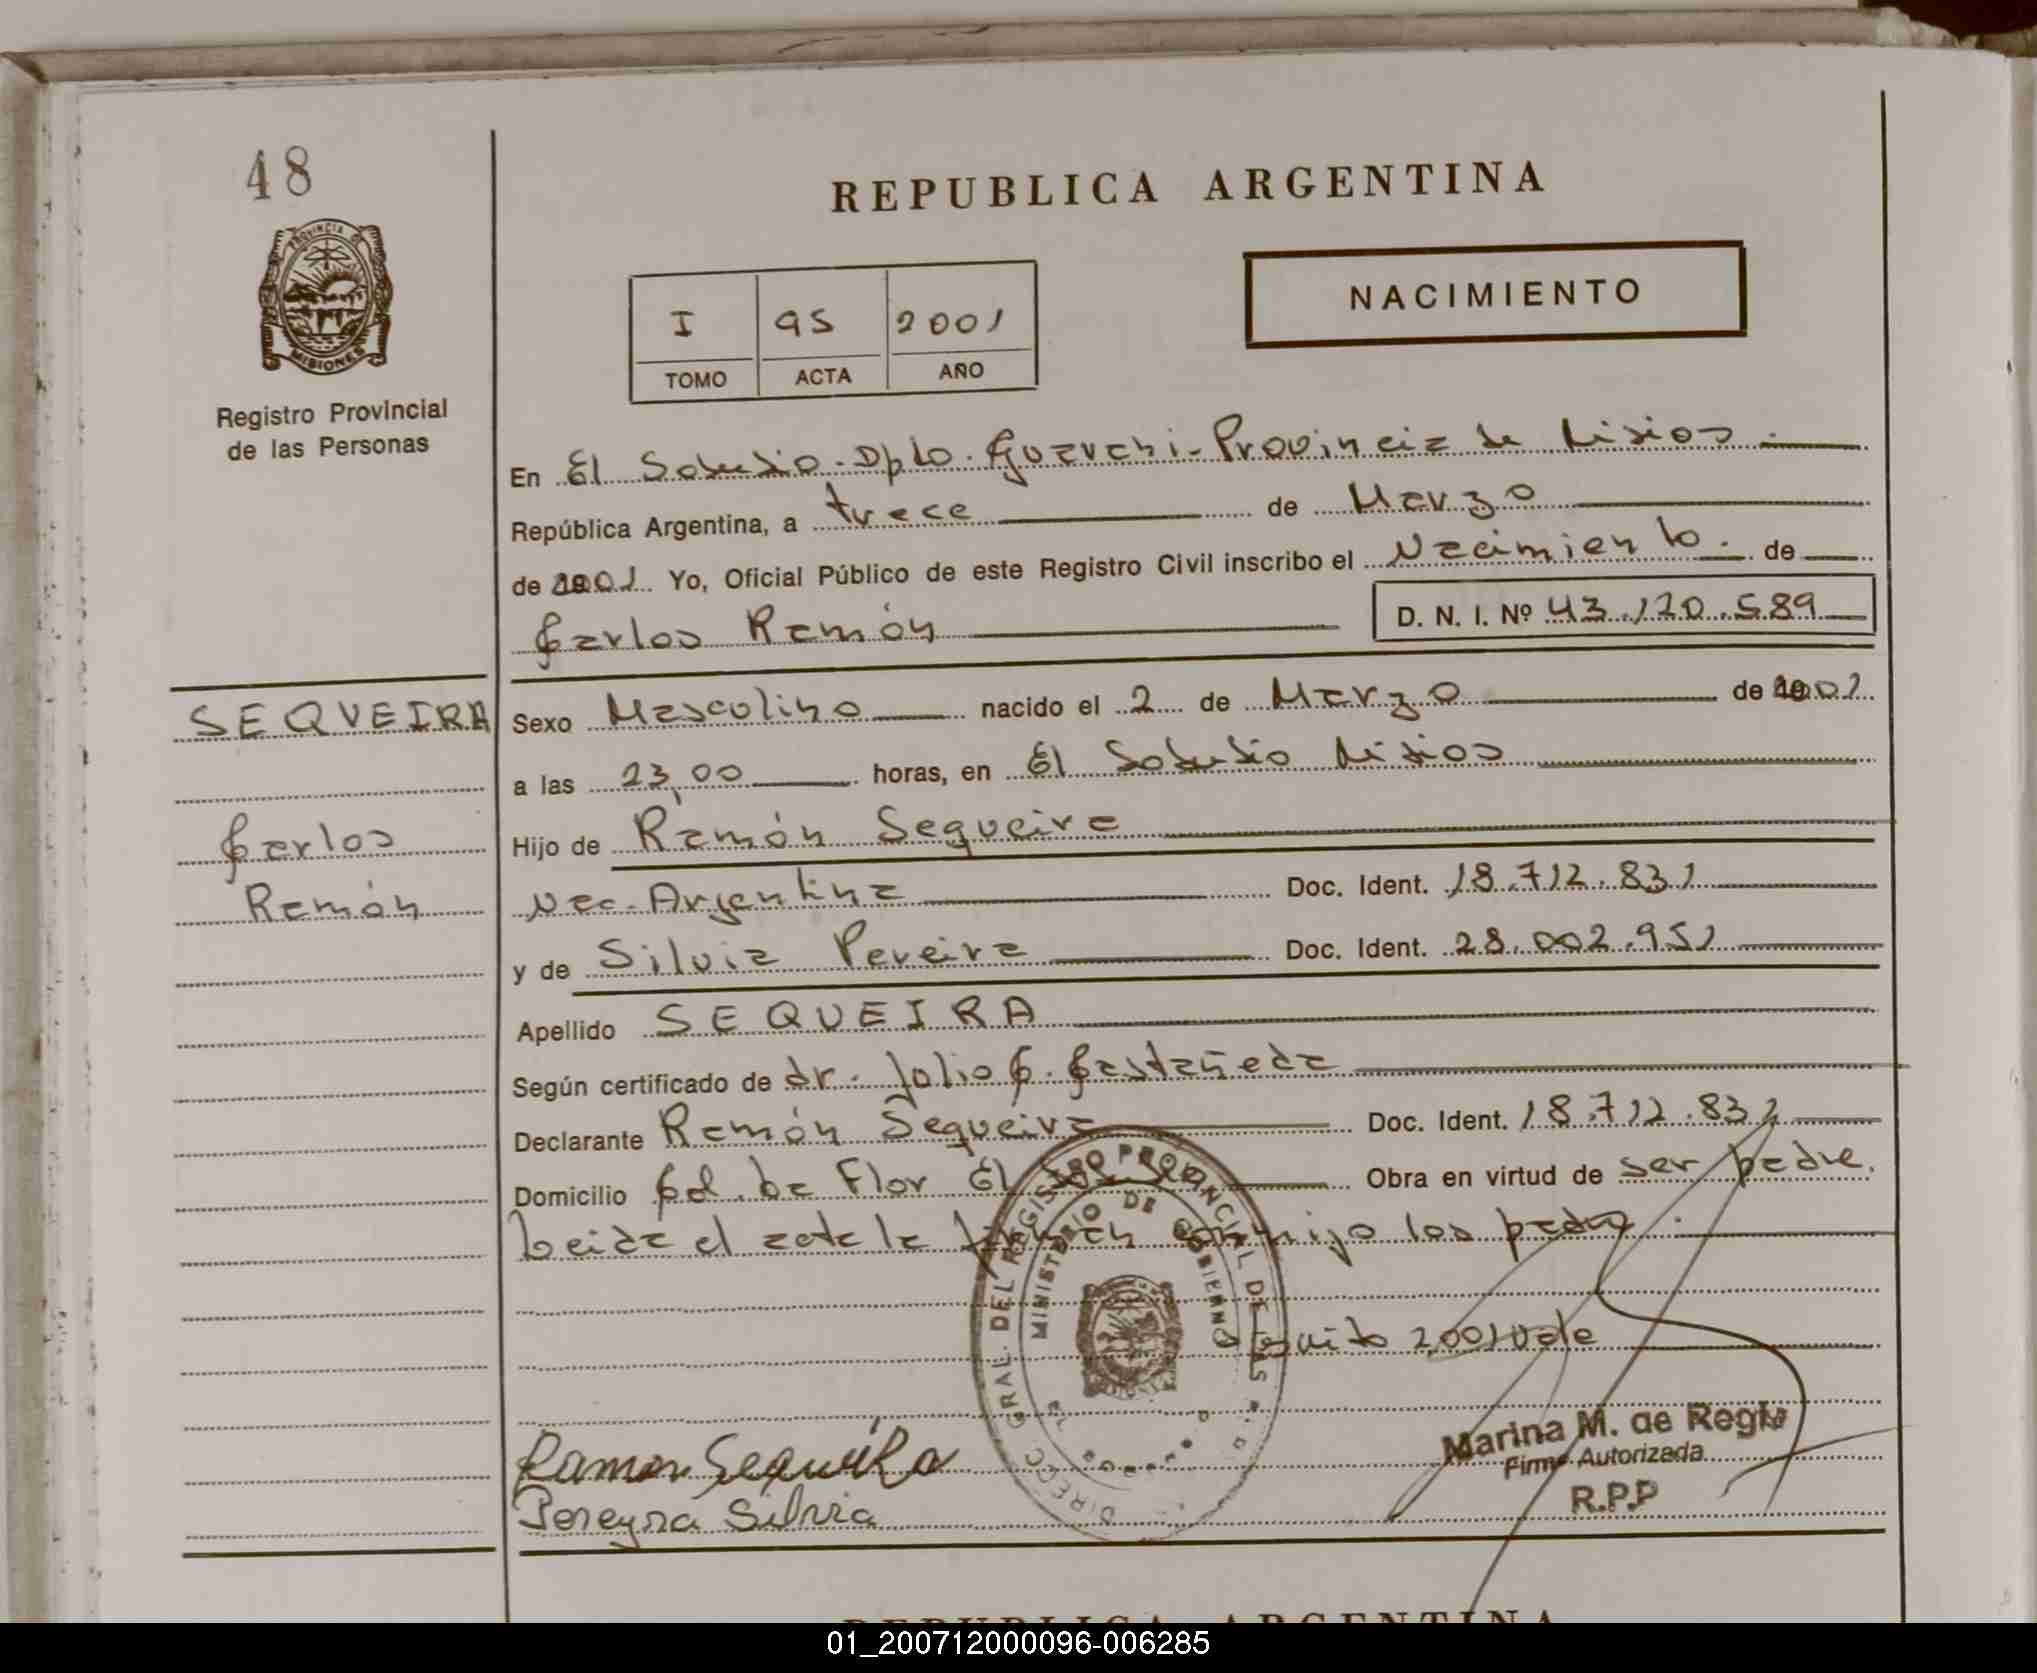 48
PROVINCIA DE
MISIONES
Registro Provincial
de las Personas
REPUBLICA ARGENTINA
NACIMIENTO
I 95 2001
TOMO ACTA AÑO
En El Soberbio-Dpto. Guarani-Provincia de Misiones.
República Argentina, a trece de Marzo
de 2001 Yo, Oficial Público de este Registro Civil inscribo el Nacimiento. de
Carlos Ramón D. N. I. Nº 43.120.589
SEQUEIRA
Carlos
Ramón
Sexo Masculino nacido el 2 de Marzo de 2001
a las 23,00 horas, en El Soberbio Misiones
Hijo de Ramón Sequeira
Nac. Argentina Doc. Ident. 18.712.831
y de Silvia Pereira Doc. Ident. 28.002.951
Apellido SEQUEIRA
Según certificado de dr. Julio C. Castañeda
Declarante Ramón Sequeira Doc. Ident. 18.712.831
Domicilio Col. La Flor El Obra en virtud de ser padre.
Leida el acta la firman conmigo los padres.
2001 Vale
DIREC. GRAL. DEL REGISTRO PROVINCIAL DE LAS
MINISTERIO DE GOBIERNO
Ramon Sequeira
Pereyra Silvia
Marina M. de Regis
Firma Autorizada
R.P.P
REPUBLICA ARGENTINA
01_200712000096-006285